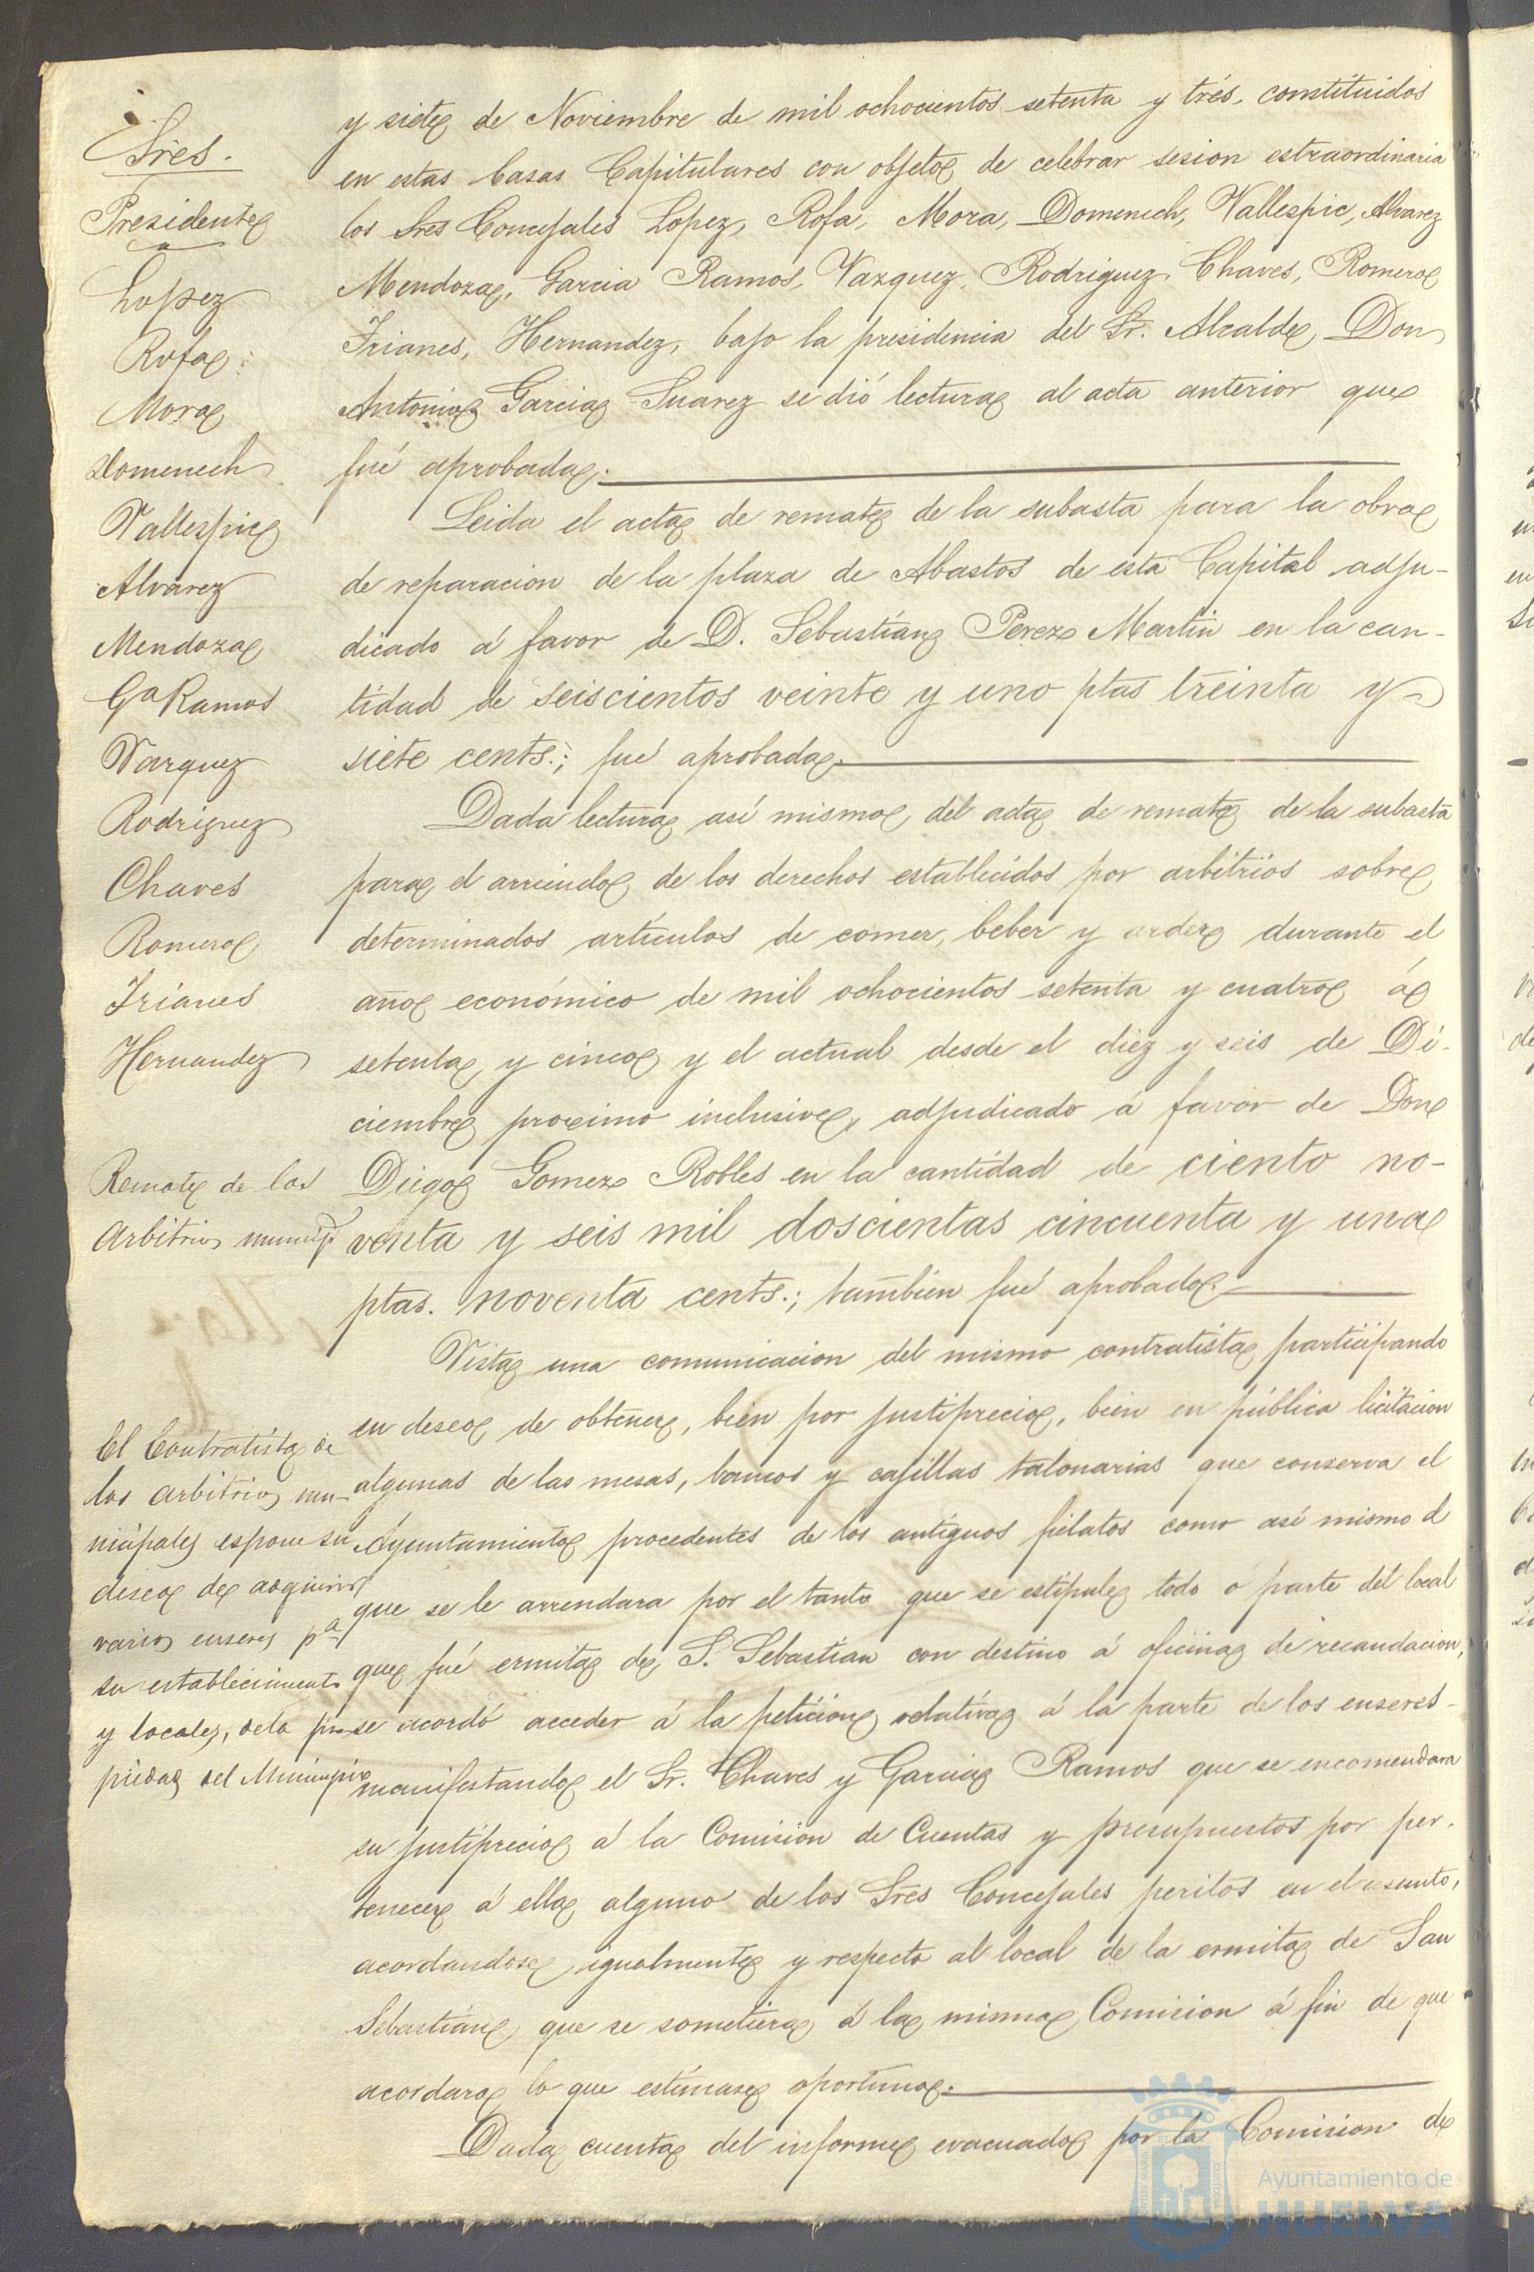 Sres.
Presidente
Lopez
Rofa
Mora
Domenech
Vallespic
Alvarez
Mendoza
Gª Ramos
Vazquez
Rodriguez
Chaves
Romero
Trianes
Hernandez
y siete de Noviembre de mil ochocientos setenta y trés, constituidos
en estas Casas Capitulares con objeto de celebrar sesion estraordinaria
los Sres Concejales Lopez, Rofa, Mora, Domenech, Vallespic, Alvarez
Mendoza, Garcia Ramos, Vazquez, Rodriguez, Chaves, Romero
Trianes, Hernandez, bajo la presidencia del Sr. Alcalde, Don
Antonio Garcia Suarez se dió lectura al acta anterior que
fué aprobada.
Leida el acta de remate de la subasta para la obra
de reparacion de la plaza de Abastos de esta Capital adju-
dicado á favor de D. Sebastian Perez Martin en la can-
tidad de seiscientos veinte y uno ptas treinta y
siete cents.; fué aprobada.
Dada lectura asi mismo del acta de remate de la subasta
para el arriendo de los derechos establecidos por arbitrios sobre
determinados articulos de comer, beber y arder durante el
año económico de mil ochocientos setenta y cuatro á
setenta y cinco y el actual desde el diez y seis de Di-
ciembre proximo inclusive, adjudicado á favor de Don
Remate de los
Arbitrios municip
Diego Gomez Robles en la cantidad de ciento no-
venta y seis mil doscientas cincuenta y una
ptas. noventa cents.; tambien fué aprobado.
Vista una comunicacion del mismo contratista participando
su deseo de obtener, bien por justiprecio, bien en pública licitacion
algunas de las mesas, bancos y casillas talonarias que conserva el
Ayuntamiento procedentes de los antiguos fielatos como asi mismo el
que se le arrendara por el tanto que se estipule todo ó parte del local
que fué ermita de S. Sebastian con destino á oficina de recaudacion,
se acordó acceder á la peticion relativa á la parte de los enseres
manifestando el Sr. Chaves y Garcia Ramos que se encomendara
su justiprecio á la Comision de Cuentas y presupuestos por per-
tenecer á ella alguno de los Sres Concejales peritos en el asunto,
acordandose igualmente y respecto al local de la ermita de San
Sebastian, que se sometiera á la misma Comision á fin de que
acordara lo que estimase oportuno.
El Contratista de
los arbitrios mu-
nicipales espone su
deseo de adquirir
varios enseres pª
su establecimiento
y locales, de la pro
piedad del Municipio
Dada cuenta del informe evacuado por la Comision de
Ayuntamiento de
HUELVA